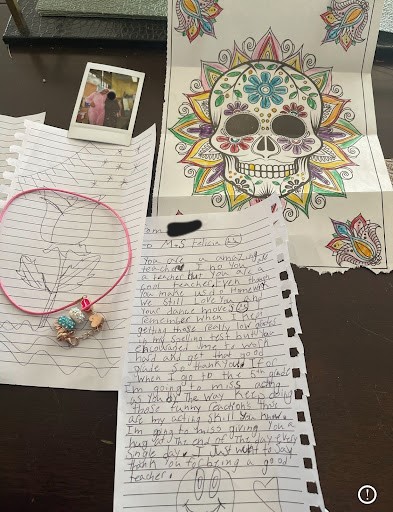 to M.S Felicia
You are a amazing
teacher
a teacher but you are a
cool teacher Even though
You make us do Homework
We still Love you and
Your dance moves
remember when I kept
getting those really low grades
in my spelling test but you
encouraged me to work
hard and get that good
grade so "thank you" for
when I go to the 5th grade
I'm going to miss acting
as you by the way Keep doing
those funny reactions this
are my acting skill You know.
Im going to miss giving you a
hug at the end of the day every
single day. I Just want to say
thank you for being a good
teacher.